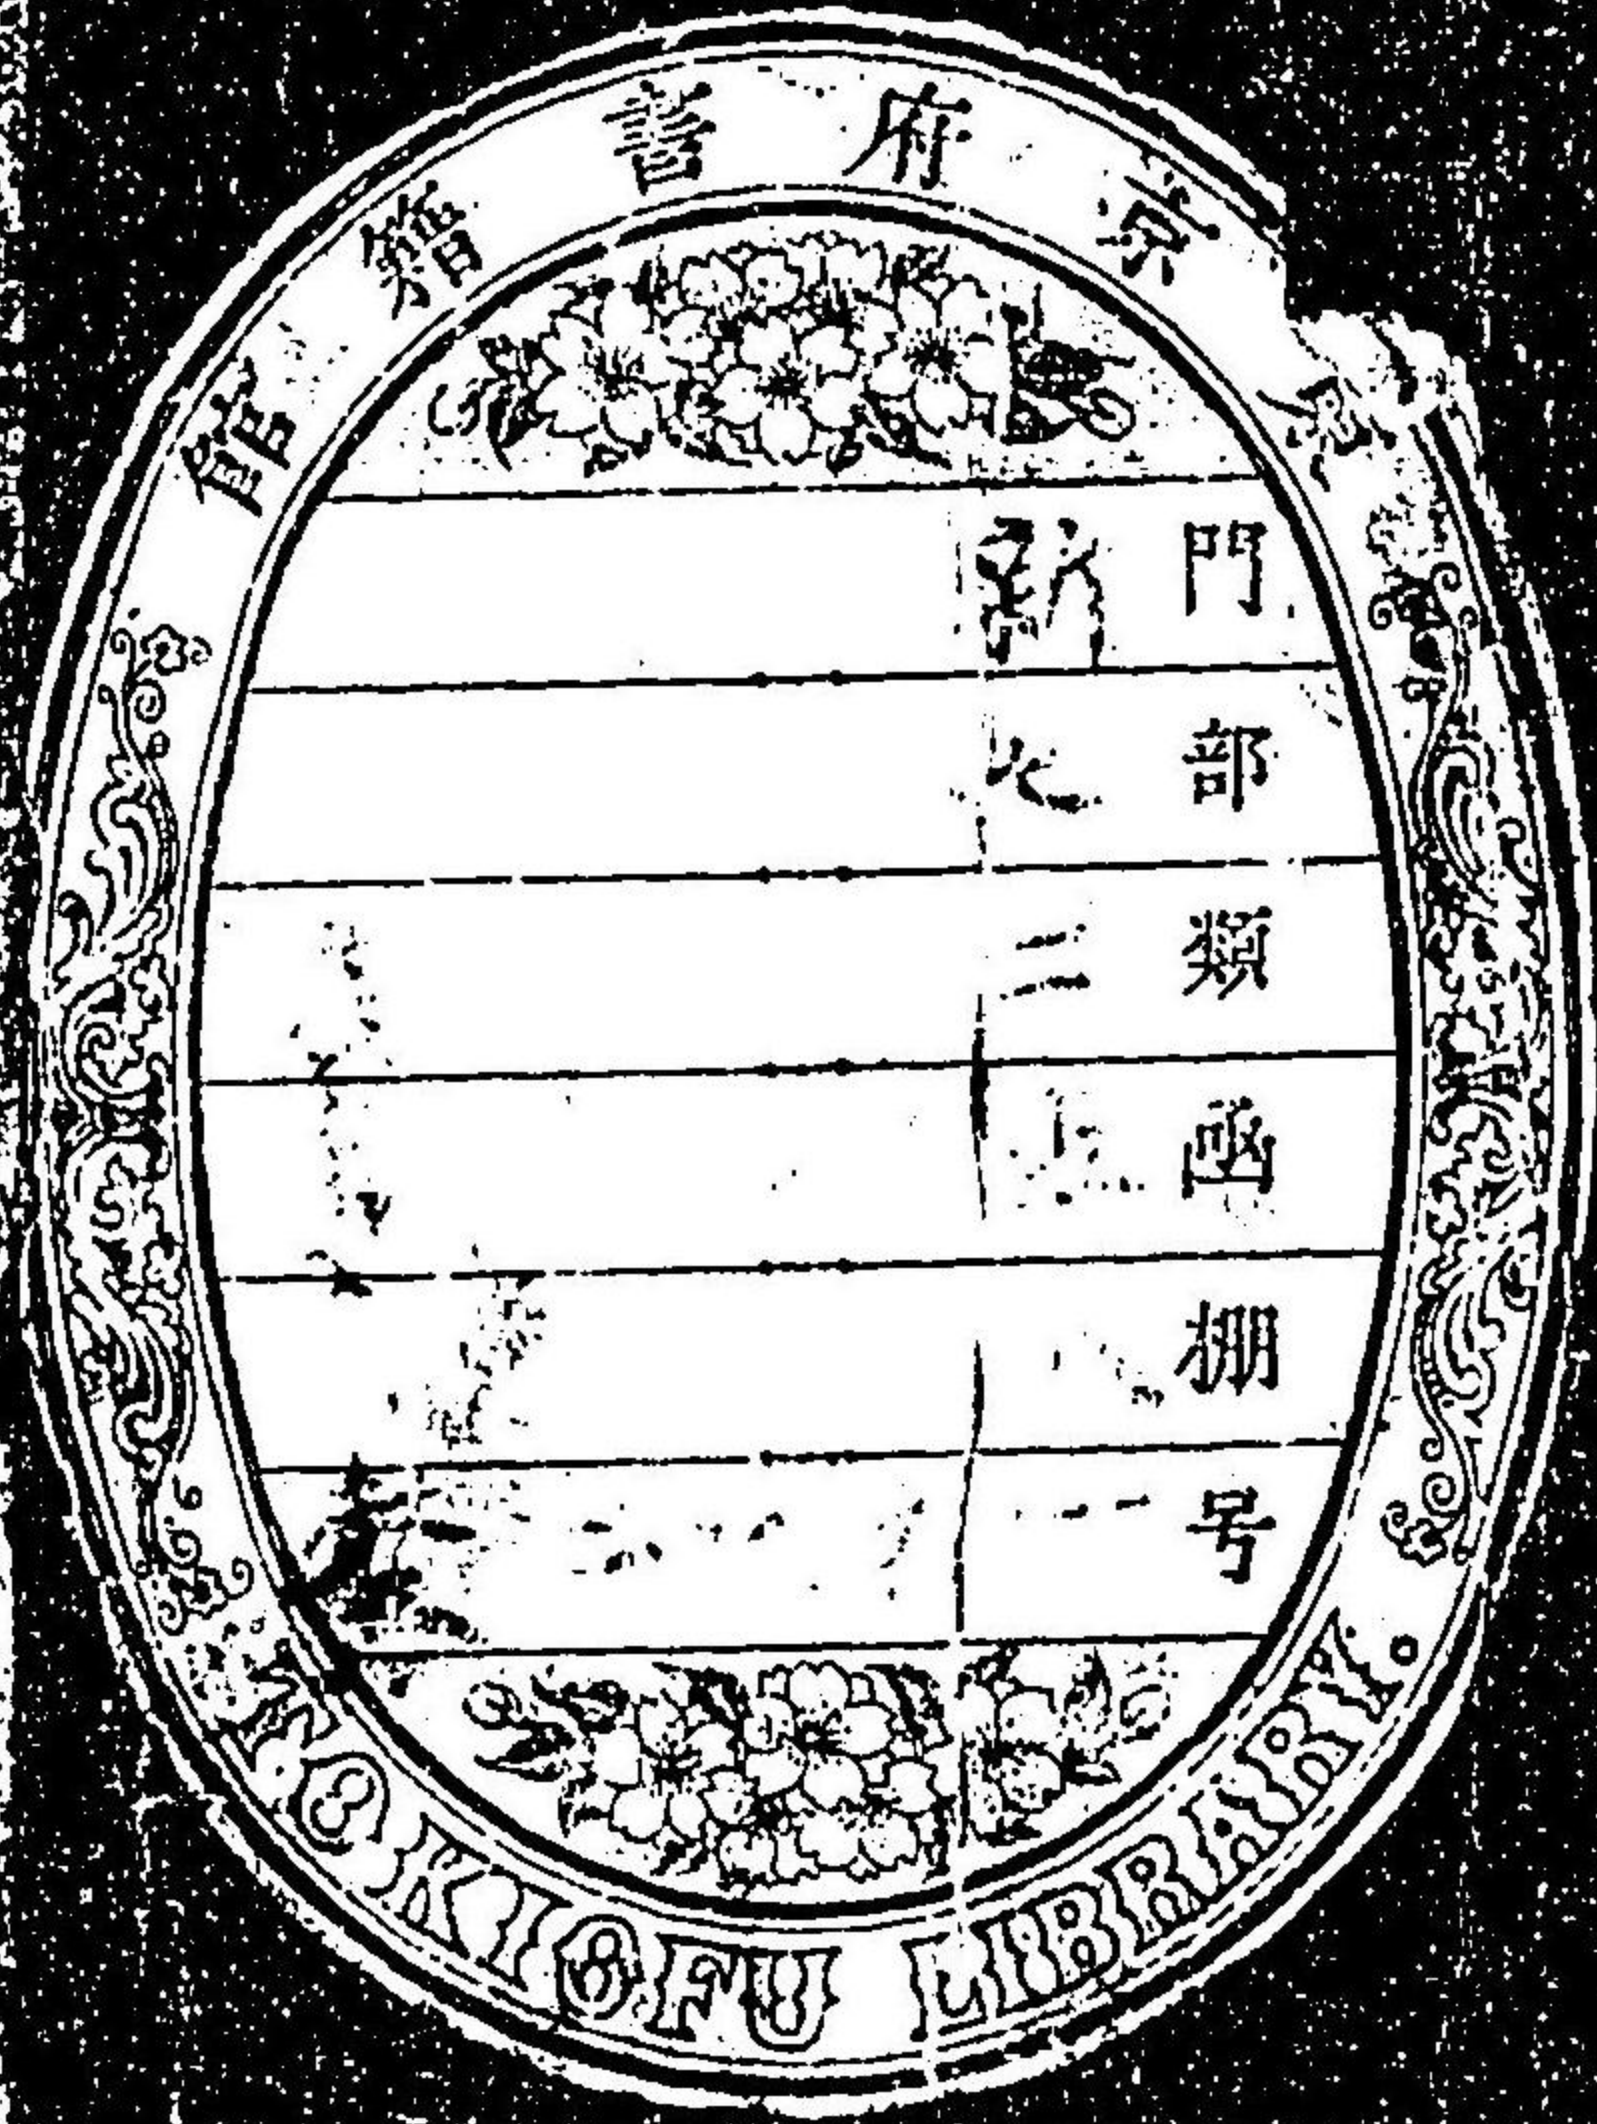 東京府書籍館
門 新
部 七
類 二
函
棚
号
TOKIOFU LIBRARY.